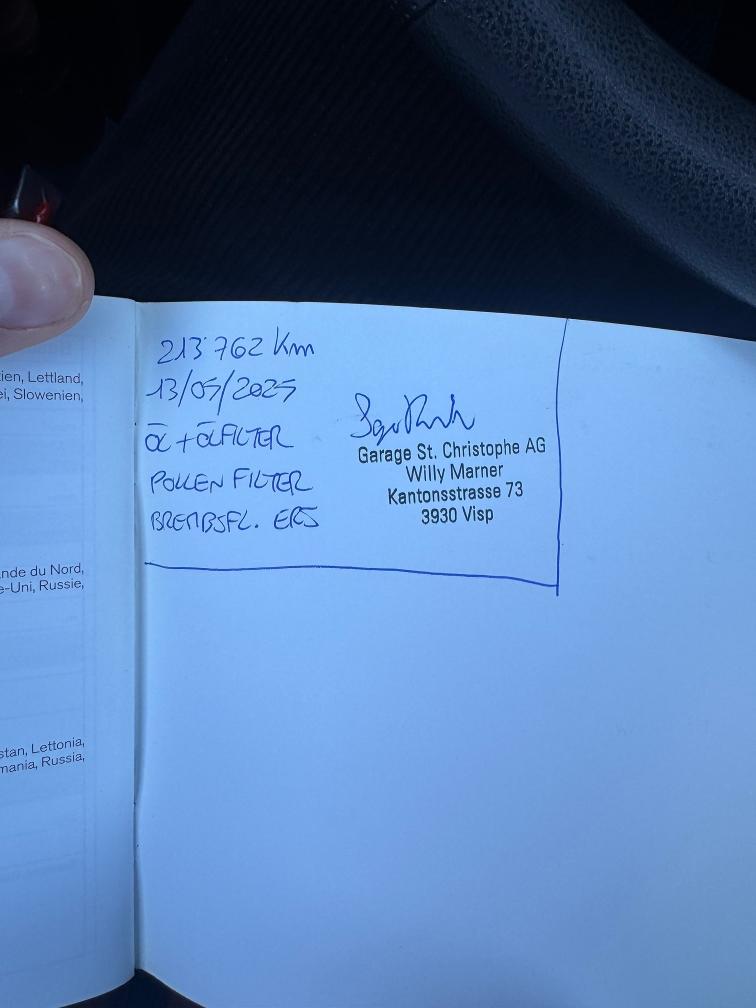 ien, Lettland,
ei, Slowenien,
nde du Nord,
e-Uni, Russie,
stan, Lettonia,
mania, Russia,
213'762 Km
13/05/2025
ÖL + ÖLFILTER
POLLEN FILTER
BREMSFL. ERS
Garage St. Christophe AG
Willy Marner
Kantonsstrasse 73
3930 Visp